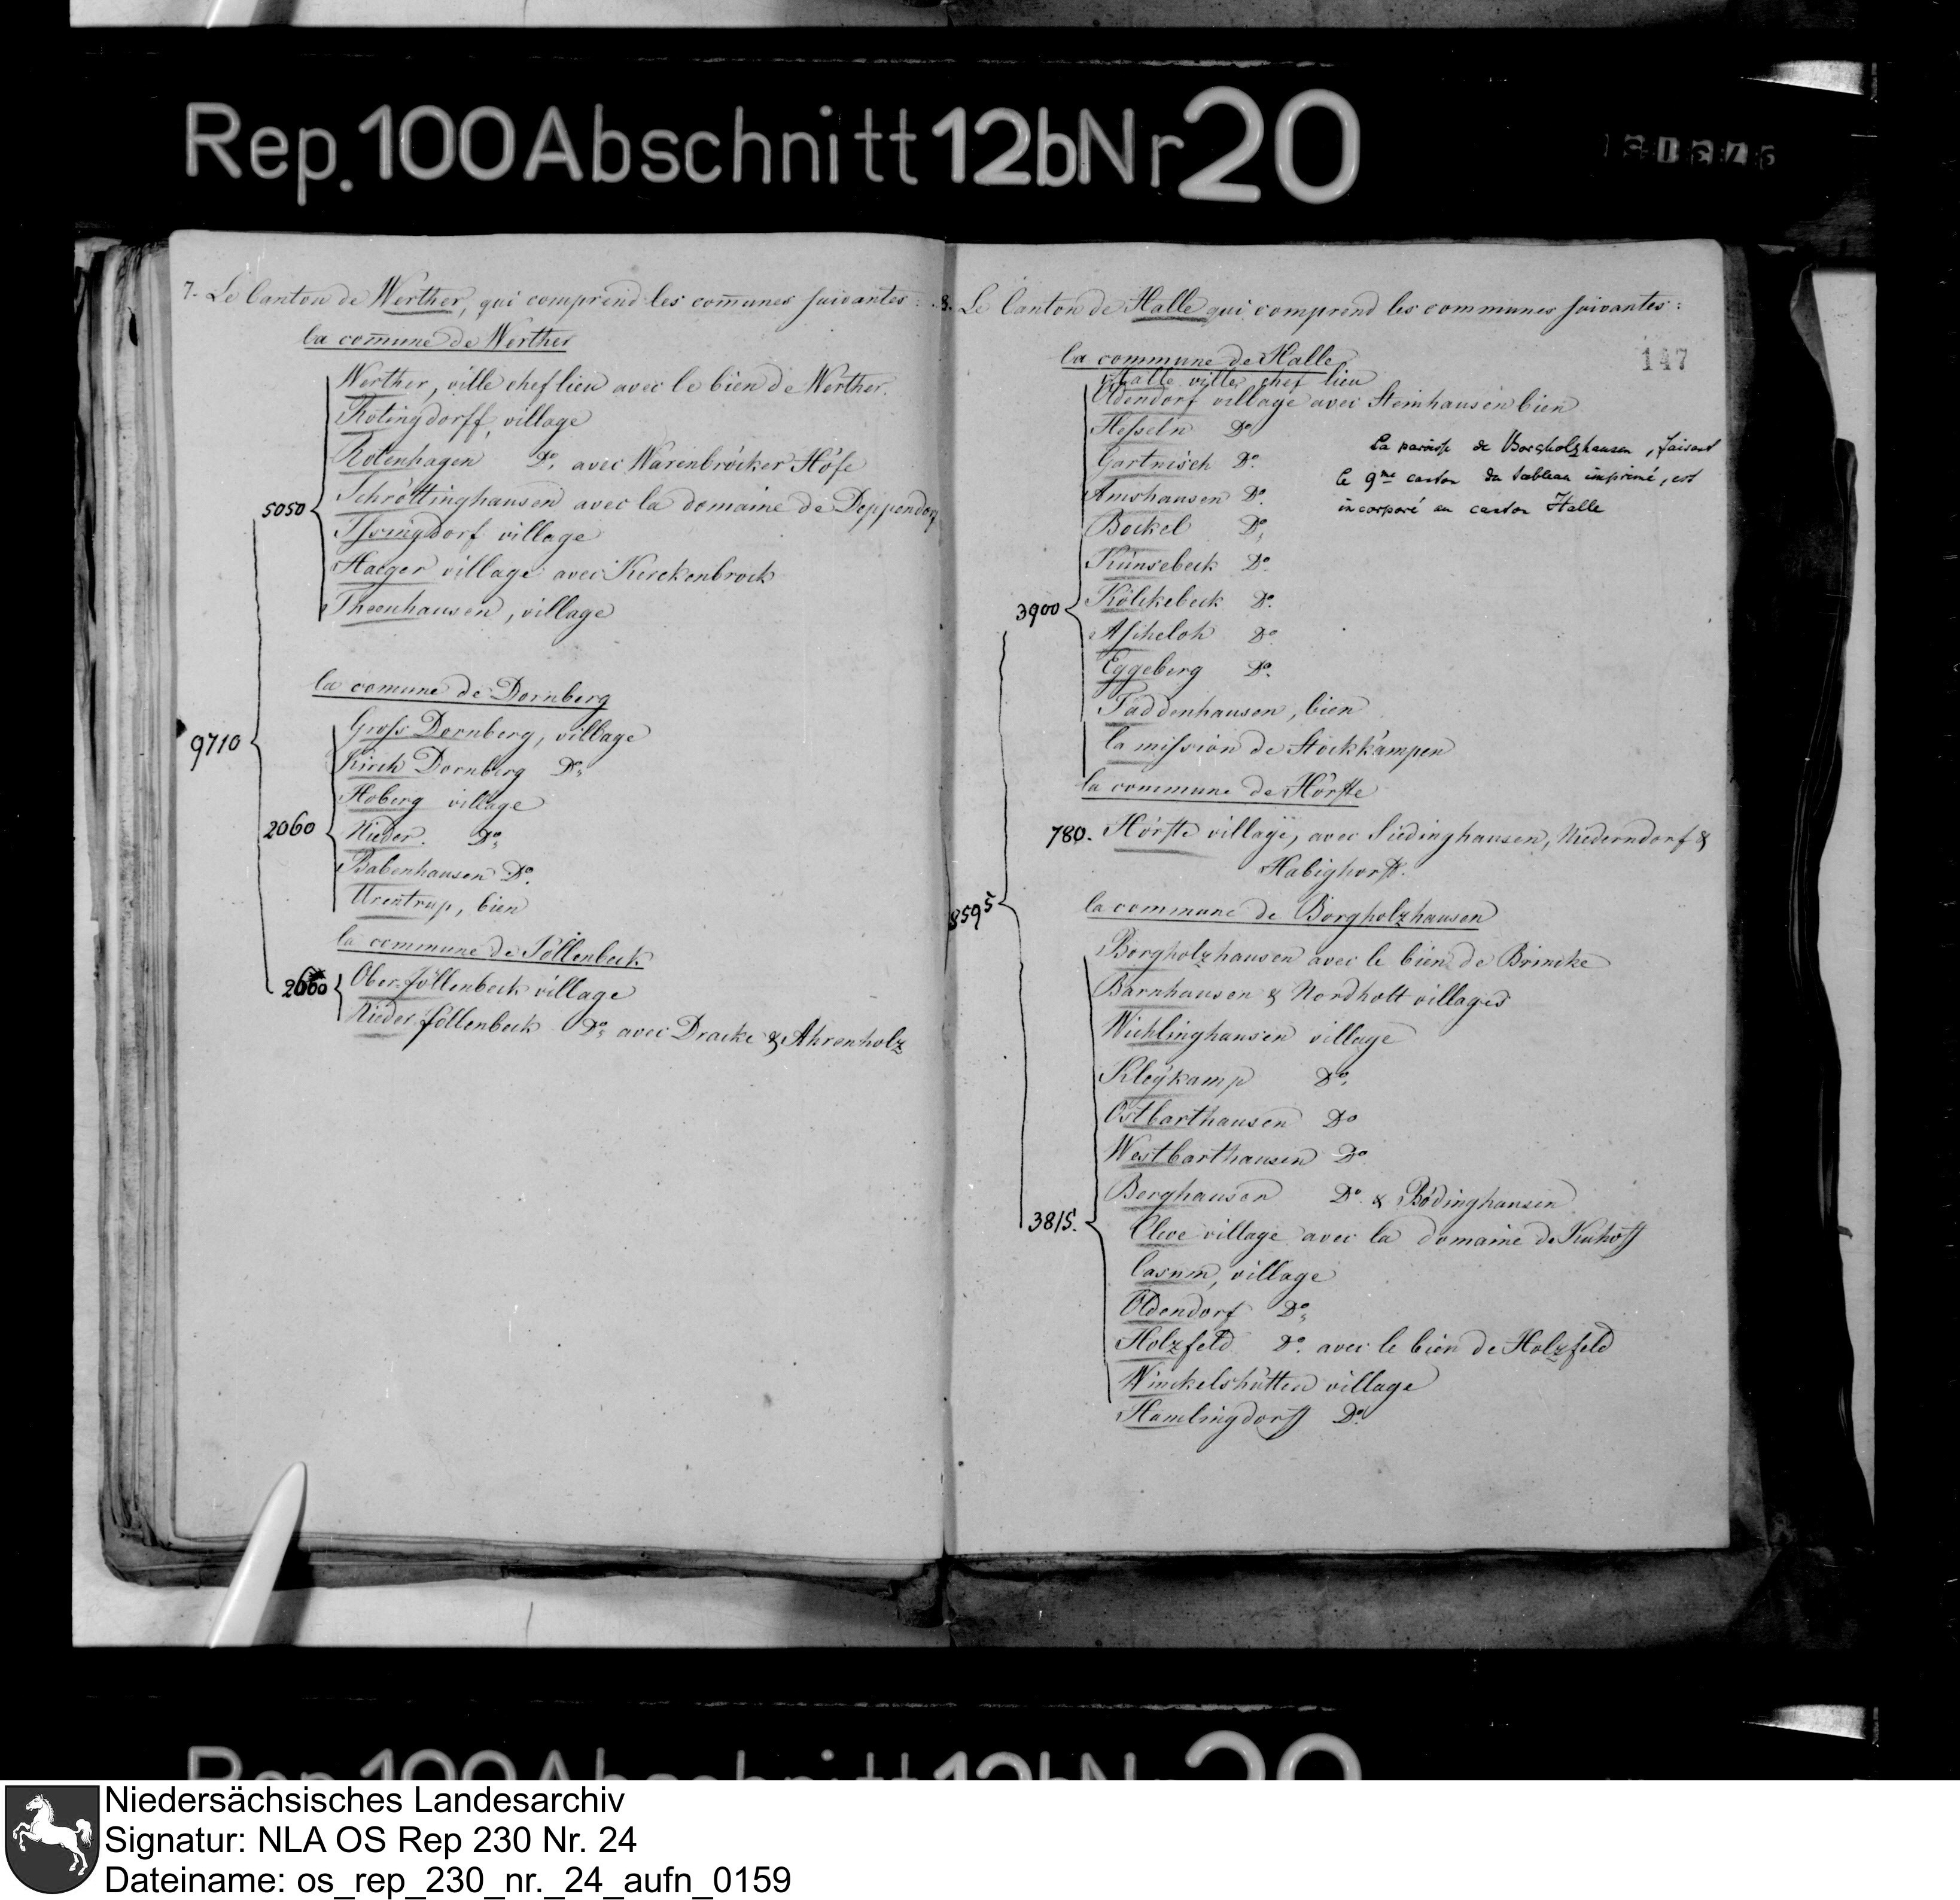 Rep. 100 Abschnitt 12b Nr 20
7. Le Canton de Werther, qui comprend les com̅unes suivantes:
la com̅une de Werther
Werther, ville chef lieu avec le bien de Werther.
Rotingdorff, village
Rotenhagen Do. avec Warenbröcker Höfe
5050 Schröttinghausen avec la domaine de Deppendorf
Issingdorf village
Haeger village avec Kerckenbrock
Theenhausen, village
9710
la comune de Dornberg
Gross Dornberg, village
Kirch Dornberg Do.
Hoberg village
2060 Nieder. Do.
Babenhausen Do.
Urentrup, bien
la commune de Jöllenbeck
2600 Ober Jöllenbeck village
Nieder Jöllenbeck Do. avec Dracke & Ahrenholz
8. Le Canton de Halle qui comprend les communes suivantes:
147
la commune de Halle
Halle ville chef lieu
Oldendorf village avec Steinhausen bien
Hesseln Do
Gartnisch Do.
Amshausen Do.
Bockel Do.
Künsebeck Do.
3900 Kölckebeck Do.
Ascheloh Do
Eggeberg Do.
Taddenhausen, bien
la mission de Stockkämpen
La paroisse de Borgholzhausen, faisant
le 9me canton du tableau imprimé, est
incorporé au canton Halle
la commune de Hörste
780. Hörste village, avec Siedinghausen, Niederndorf &
Habighorst.
8595
la commune de Borgholzhausen
Borgholzhausen avec le bien de Brincke
Barnhausen & Nordholt villages
Wichlinghausen village
Kleykamp Do.
Ostbarthausen Do
Westbarthausen Do
Berghausen Do. & Bödinghausen
3815. Cleve village avec la domaine de Kuhoff
Casum, village
Oldendorf Do.
Holzfeld Do. avec le bien de Holzfeld
Winckelshütten village
Hamlingdorff Do.
Niedersächsisches Landesarchiv
Signatur: NLA OS Rep 230 Nr. 24
Dateiname: os_rep_230_nr._24_aufn_0159